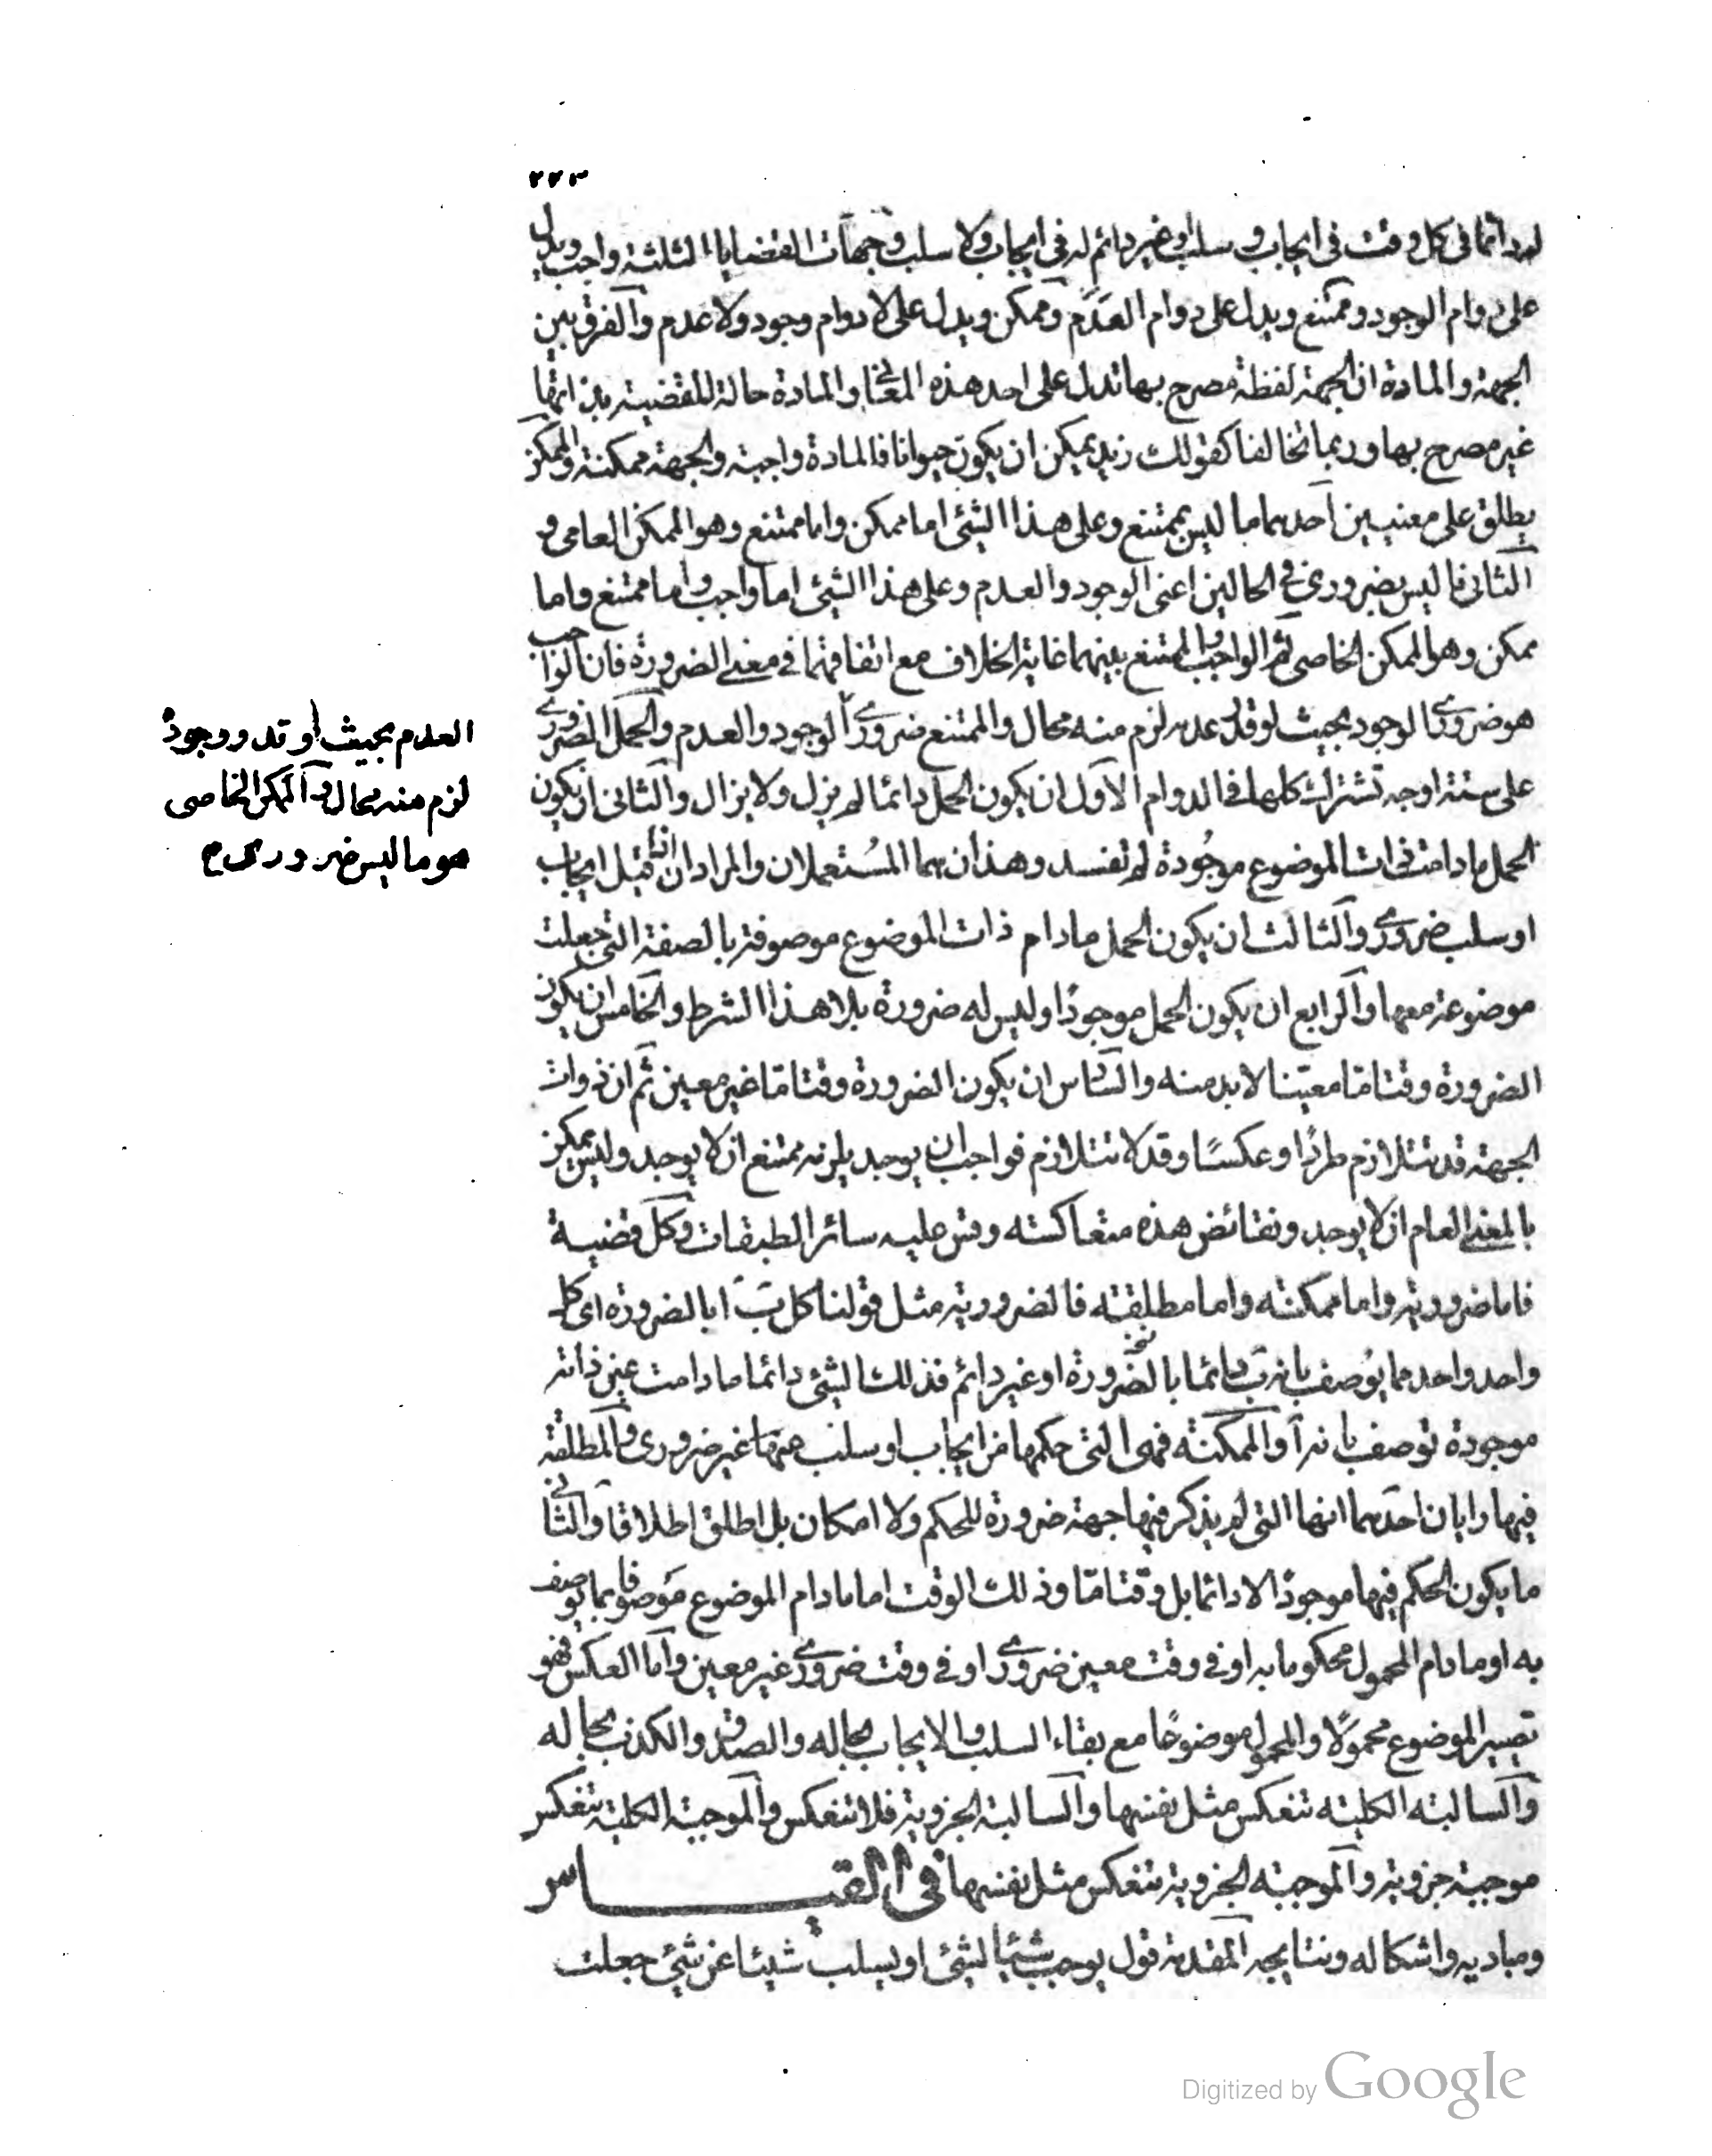 ٢٢٣
له دائما فى كل وقت فى ايجاب و سلب او غير دائم له فى ايجاب ولا سلب وجهات القضايا الثلثة واجب ويدل
على دوام الوجود وممتنع ويدل على دوام العدم وممكن ويدل على لا دوام وجود ولا عدم والفرق بين
الجهة والمادة ان الجهة لفظة مصرح بها تدل على احد هذه المعانى والمادة حالة للقضية بذاتها
غير مصرح بها وربما تخالفا كقولك زيد يمكن ان يكون حيوانا فالمادة واجبة والجهة ممكنة والممكن
يطلق على معنيين احدهما ما ليس بممتنع وعلى هذا الشئ اما ممكن واما ممتنع وهو الممكن العامى و
الثانى ما ليس بضرورى فى الحالين اعنى الوجود والعدم وعلى هذا الشئ اما واجب واما ممتنع واما
ممكن وهو الممكن الخاصى ثم الواجب والممتنع بينهما غاية الخلاف مع اتفاقهما فى معنى الضرورة فان الواجب
هو ضرورى الوجود بحيث لو قدر عدمه لزم منه محال والممتنع ضرورى الوجود والعدم والحمل الضرورى
على ستة اوجه تشترك كلها فى الدوام الاول ان يكون الحمل دائما لم يزل ولا يزال والثانى ان يكون
الحمل ما دامت ذات الموضوع موجودة لم تفسد وهذان هما المستعملان والمراد ان اذا قيل ايجاب
او سلب ضرورى والثالث ان يكون الحمل ما دام ذات الموضوع موصوفة بالصفة التى جعلت
موضوعة معها والرابع ان يكون الحمل موجودا وليس له ضرورة بلا هذا الشرط والخامس ان يكون
الضرورة وقتا ما معينا لا بد منه والسادس ان يكون الضرورة وقتا ما غير معين ثم ان ذوات
الجهة قد تتلازم طردا وعكسا وقد لا تتلازم فواجب ان يوجد يلزمه ممتنع ان لا يوجد وليس يمكن
بالمعنى العام ان لا يوجد ونقائض هذه متعاكسة وقس عليه سائر الطبقات وكل قضية
فاما ضرورية واما ممكنة واما مطلقة فالضرورية مثل قولنا كل ب ا بالضرورة اى كل
واحد واحد مما يوصف بانه ب دائما بالضرورة او غير دائم فذلك الشئ دائما ما دامت عين ذاته
موجودة توصف بانه ا والممكنة فهى التى حكمها من ايجاب او سلب عنها غير ضرورى والمطلقة
فيها رايان احدهما انها التى لم يذكر فيها جهة ضرورة للحكم ولا امكان بل اطلق اطلاقا والثانى
ما يكون الحكم فيها موجودا لا دائما بل وقتا ما وذلك الوقت اما ما دام الموضوع موصوفا بما يوصف
به او ما دام المحمول محكوما به او فى وقت معين ضرورى او فى وقت ضرورى غير معين واما العكس فهو
تصيير الموضوع محمولا والمحمول موضوعا مع بقاء السلب والايجاب بحاله والصدق والكذب بحاله
والسالبة الكلية تنعكس مثل نفسها والسالبة الجزوية فلا تنعكس والموجبة الكلية تنعكس
موجبة جزوية والموجبة الجزوية تنعكس مثل نفسها فى القياس
ومباديه واشكاله ونتايجه المقدمة قول يوجب شيئا لشئ او يسلب شيئا عن شئ جعلت
العدم بحيث لو قدر وجوده
لزم منه محال والممكن الخاصى
هو ما ليس ضرورى ح
Digitized by Google